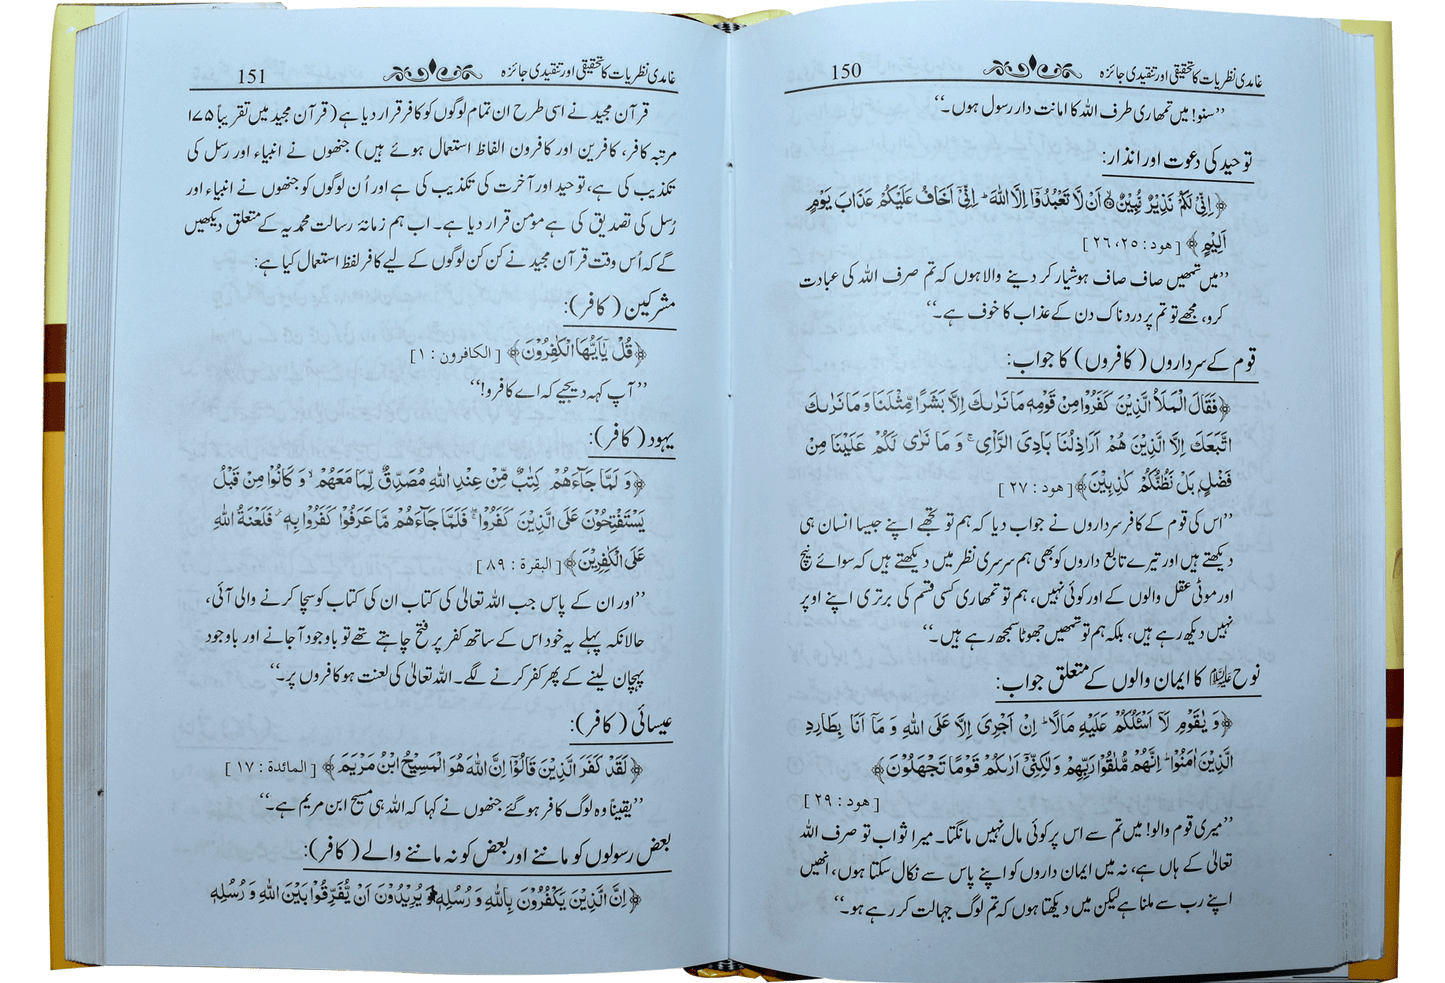 غامدی نظریات کا تحقیقی اور تنقیدی جائزہ 150
’’سنو! میں تمھاری طرف اللہ کا امانت دار رسول ہوں۔‘‘
توحید کی دعوت اور انذار:
﴿اِنِّیْ لَکُمْ نَذِیْرٌ مُّبِیْنٌ۝ اَنْ لَّا تَعْبُدُوْٓا اِلَّا اللّٰہَ ؕ اِنِّیْٓ اَخَافُ عَلَیْکُمْ عَذَابَ یَوْمٍ
اَلِیْمٍ﴾ [ہود: ۲۵، ۲۶]
’’میں تمھیں صاف صاف ہوشیار کر دینے والا ہوں کہ تم صرف اللہ کی عبادت
کرو، مجھے تو تم پر دردناک دن کے عذاب کا خوف ہے۔‘‘
قوم کے سرداروں (کافروں) کا جواب:
﴿فَقَالَ الْمَلَاُ الَّذِیْنَ کَفَرُوْا مِنْ قَوْمِہٖ مَا نَرٰىکَ اِلَّا بَشَرًا مِّثْلَنَا وَ مَا نَرٰىکَ
اتَّبَعَکَ اِلَّا الَّذِیْنَ ھُمْ اَرَاذِلُنَا بَادِیَ الرَّاْیِ ۚ وَ مَا نَرٰی لَکُمْ عَلَیْنَا مِنْ
فَضْلٍ بَلْ نَظُنُّکُمْ کٰذِبِیْنَ﴾ [ہود: ۲۷]
’’اس کی قوم کے کافر سرداروں نے جواب دیا کہ ہم تو تجھے اپنے جیسا انسان ہی
دیکھتے ہیں اور تیرے تابع داروں کو بھی ہم سرسری نظر میں دیکھتے ہیں کہ سوائے نیچ
اور موٹی عقل والوں کے اور کوئی نہیں، ہم تو تمھاری کسی قسم کی برتری اپنے اوپر
نہیں دیکھ رہے ہیں، بلکہ ہم تو تمھیں جھوٹا سمجھ رہے ہیں۔‘‘
نوح علیہ السلام کا ایمان والوں کے متعلق جواب:
﴿وَ یٰقَوْمِ لَآ اَسْئَلُکُمْ عَلَیْہِ مَالًا ؕ اِنْ اَجْرِیَ اِلَّا عَلَی اللّٰہِ وَ مَآ اَنَا بِطَارِدِ
الَّذِیْنَ اٰمَنُوْا ؕ اِنَّھُمْ مُّلٰقُوْا رَبِّھِمْ وَ لٰکِنِّیْٓ اَرٰىکُمْ قَوْمًا تَجْھَلُوْنَ﴾
[ہود: ۲۹]
’’میری قوم والو! میں تم سے اس پر کوئی مال نہیں مانگتا۔ میرا ثواب تو صرف اللہ
تعالیٰ کے ہاں ہے، نہ میں ایمان داروں کو اپنے پاس سے نکال سکتا ہوں، انھیں
اپنے رب سے ملنا ہے لیکن میں دیکھتا ہوں کہ تم لوگ جہالت کر رہے ہو۔‘‘
غامدی نظریات کا تحقیقی اور تنقیدی جائزہ 151
قرآن مجید نے اسی طرح ان تمام لوگوں کو کافر قرار دیا ہے (قرآن مجید میں تقریباً ۱۷۵
مرتبہ کافر، کافرین اور کافرون الفاظ استعمال ہوئے ہیں) جنھوں نے انبیاء اور رسل کی
تکذیب کی ہے، توحید اور آخرت کی تکذیب کی ہے اور اُن لوگوں کو جنھوں نے انبیاء اور
رُسل کی تصدیق کی ہے مؤمن قرار دیا ہے۔ اب ہم زمانۂ رسالت محمدیہ کے متعلق دیکھیں
گے کہ اُس وقت قرآن مجید نے کن کن لوگوں کے لیے کافر لفظ استعمال کیا ہے:
مشرکین (کافر):
﴿قُلْ یٰٓاَیُّھَا الْکٰفِرُوْنَ﴾ [الکافرون: ۱]
’’آپ کہہ دیجیے کہ اے کافرو!‘‘
یہود (کافر):
﴿وَ لَمَّا جَآءَھُمْ کِتٰبٌ مِّنْ عِنْدِ اللّٰہِ مُصَدِّقٌ لِّمَا مَعَھُمْ ۙ وَ کَانُوْا مِنْ قَبْلُ
یَسْتَفْتِحُوْنَ عَلَی الَّذِیْنَ کَفَرُوْا ۚ فَلَمَّا جَآءَھُمْ مَّا عَرَفُوْا کَفَرُوْا بِہٖ ۫ فَلَعْنَۃُ اللّٰہِ
عَلَی الْکٰفِرِیْنَ﴾ [البقرۃ: ۸۹]
’’اور ان کے پاس جب اللہ تعالیٰ کی کتاب ان کی کتاب کو سچا کرنے والی آئی،
حالانکہ پہلے یہ خود اس کے ساتھ کفر پر فتح چاہتے تھے تو باوجود آ جانے اور باوجود
پہچان لینے کے پھر کفر کرنے لگے۔ اللہ تعالیٰ کی لعنت ہو کافروں پر۔‘‘
عیسائی (کافر):
﴿لَقَدْ کَفَرَ الَّذِیْنَ قَالُوْٓا اِنَّ اللّٰہَ ھُوَ الْمَسِیْحُ ابْنُ مَرْیَمَ﴾ [المائدۃ: ۱۷]
’’یقیناً وہ لوگ کافر ہو گئے جنھوں نے کہا کہ اللہ ہی مسیح ابن مریم ہے۔‘‘
بعض رسولوں کو ماننے اور بعض کو نہ ماننے والے (کافر):
﴿اِنَّ الَّذِیْنَ یَکْفُرُوْنَ بِاللّٰہِ وَ رُسُلِہٖ وَ یُرِیْدُوْنَ اَنْ یُّفَرِّقُوْا بَیْنَ اللّٰہِ وَ رُسُلِہٖ